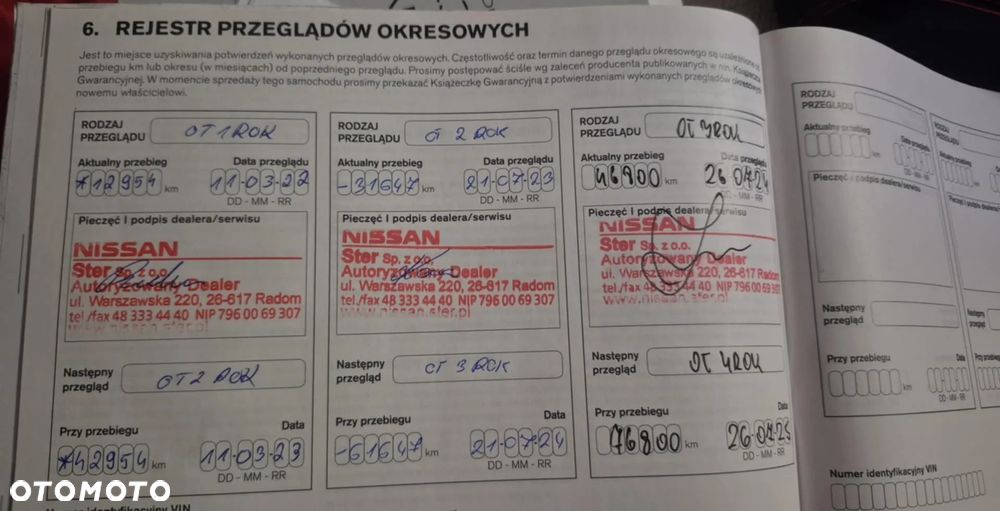 6. REJESTR PRZEGLĄDÓW OKRESOWYCH
Jest to miejsce uzyskiwania potwierdzeń wykonanych przeglądów okresowych. Częstotliwość oraz termin danego przeglądu okresowego są uzależnione od
przebiegu km lub okresu (w miesiącach) od poprzedniego przeglądu. Prosimy postępować ściśle wg zaleceń producenta publikowanych w nin. Książeczce
Gwarancyjnej. W momencie sprzedaży tego samochodu prosimy przekazać Książeczkę Gwarancyjną z potwierdzeniami wykonanych przeglądów okresowych
nowemu właścicielowi.
RODZAJ
PRZEGLĄDU
OT 1 ROK
Aktualny przebieg
Data przeglądu
*12954 km
11-03-22
DD - MM - RR
Pieczęć I podpis dealera/serwisu
NISSAN
Ster Sp. z o.o.
Autoryzowany Dealer
ul. Warszawska 220, 26-617 Radom
tel./fax 48 333 44 40 NIP 796 00 69 307
www.nissan.ster.pl
Następny
przegląd
OT 2 ROK
Przy przebiegu
Data
*42954 km
11-03-23
DD - MM - RR
RODZAJ
PRZEGLĄDU
OT 2 ROK
Aktualny przebieg
Data przeglądu
-31647 km
21-07-23
DD - MM - RR
Pieczęć I podpis dealera/serwisu
NISSAN
Ster Sp. z o.o.
Autoryzowany Dealer
ul. Warszawska 220, 26-617 Radom
tel./fax 48 333 44 40 NIP 796 00 69 307
www.nissan.ster.pl
Następny
przegląd
OT 3 ROK
Przy przebiegu
Data
-61647 km
21-07-24
DD - MM - RR
RODZAJ
PRZEGLĄDU
OT 3 ROK
Aktualny przebieg
Data przeglądu
46800 km
26 07 24
DD - MM - RR
Pieczęć I podpis dealera/serwisu
NISSAN
Ster Sp. z o.o.
Autoryzowany Dealer
ul. Warszawska 220, 26-617 Radom
tel./fax 48 333 44 40 NIP 796 00 69 307
www.nissan.ster.pl
Następny
przegląd
OT 4 ROK
Przy przebiegu
Data
76800 km
26-07-25
DD - MM - RR
RODZAJ
PRZEGLĄDU
Aktualny przebieg
Data przeglądu
km
DD - MM - RR
Pieczęć I podpis dealera/serwisu
Następny
przegląd
Przy przebiegu
Data
km
DD - MM - RR
Numer identyfikacyjny VIN
RODZAJ
PRZEGLĄDU
Aktualny przebieg
Następny
przegląd
Przy przebiegu
Numer identyfikacyjny VIN
OTOMOTO